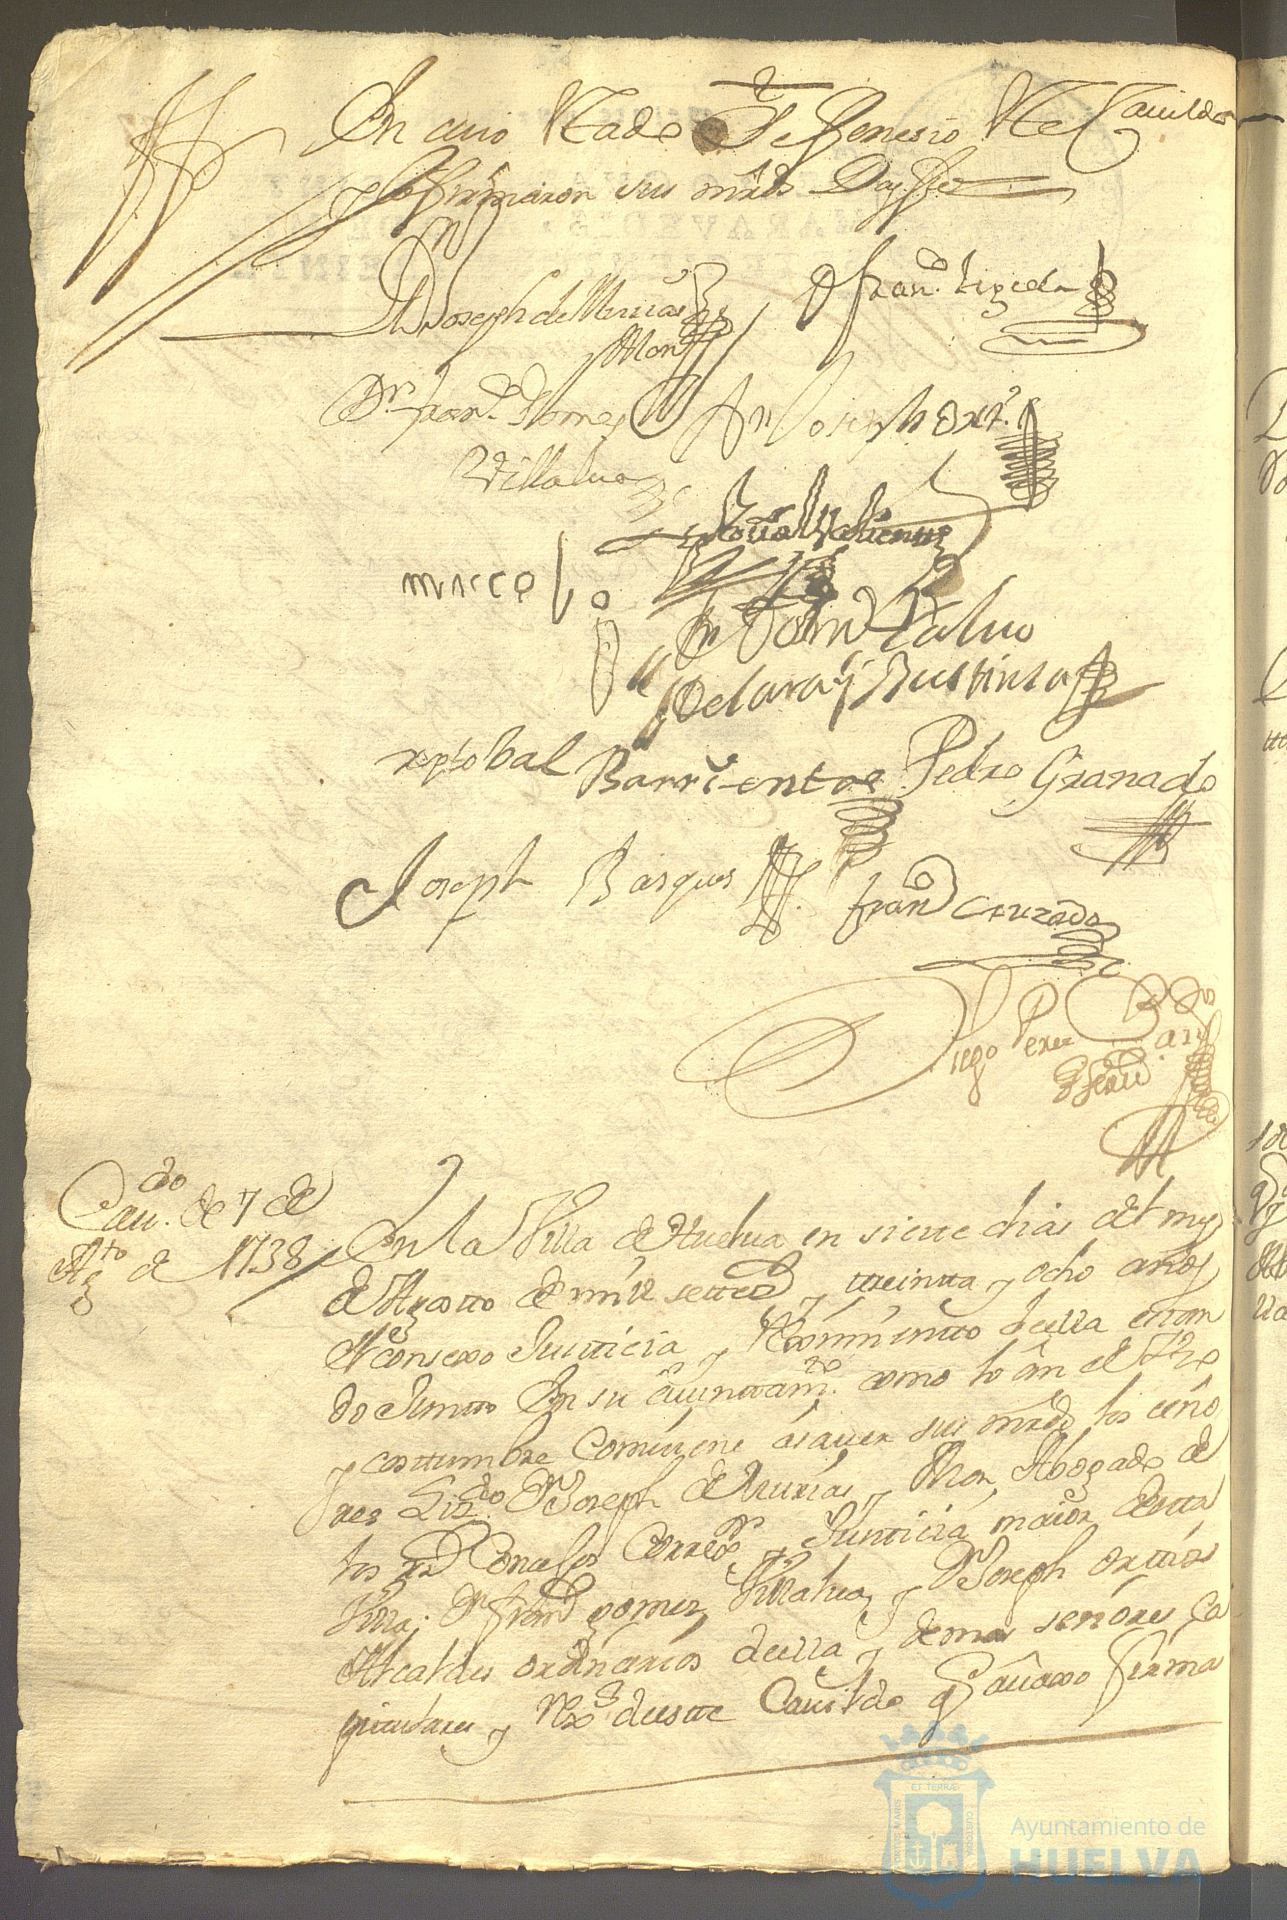 En cuio estado se fenesio este Cauildo
y lo firmaron sus mrds Doy fee
Dn Joseph de Murias
Mon
Fran.co
Dr. Fran.co Gomez
Villalua
Dn Joseph Ort.s
marcol
Dn Juan Caluo
de Lara y Bustinsa
xptobal Barrientos Pedro Granado
Joseph Basques Franco Cruzado
Diego Perez
Cau.do de 7 de
Ag.to de 1738
En la Villa de Huelua en siete dias del mes
de Agosto de mill settec.s y treinta y ocho años
el consexo Justicia y Reximiento de ella estan
do Junto en su aiuntam.to como lo an de Uso
y costumbre Combiene asauer sus mrds los seño
res Liz.do Dn Joseph de Murias y Mon Abogado de
los Rs Conсejos Correx.or y Justicia maior de esta
Villa, Dn Fran.co gomez Villalua, y Dn Joseph ortiis
Alcaldes ordinarios de ella y demas señores Ca
pitulares y de este Cauildo q auaxo firma
Ayuntamiento de
HUELVA